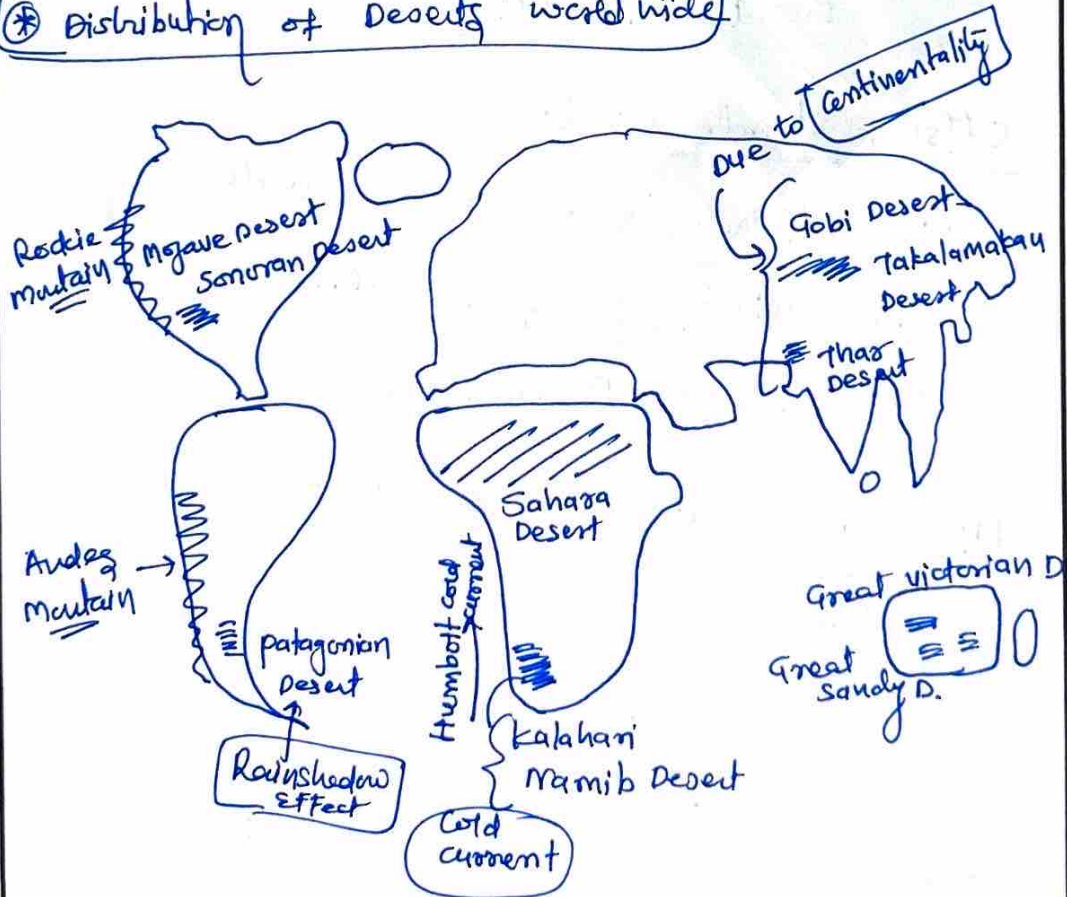 * Distribution of Deserts world wide
Due to Continentality
Rockie
Moutain
Mojave Desert
Sonoran Desert
Gobi Desert
Takalamakan
Desert
Thar
Desert
Sahara
Desert
Andes
Moutain
Patagonian
Desert
Rainshadow
Effect
Humbolt cold
current
Kalahari
Namib Desert
Cold
current
Great Victorian D
Great
Sandy D.